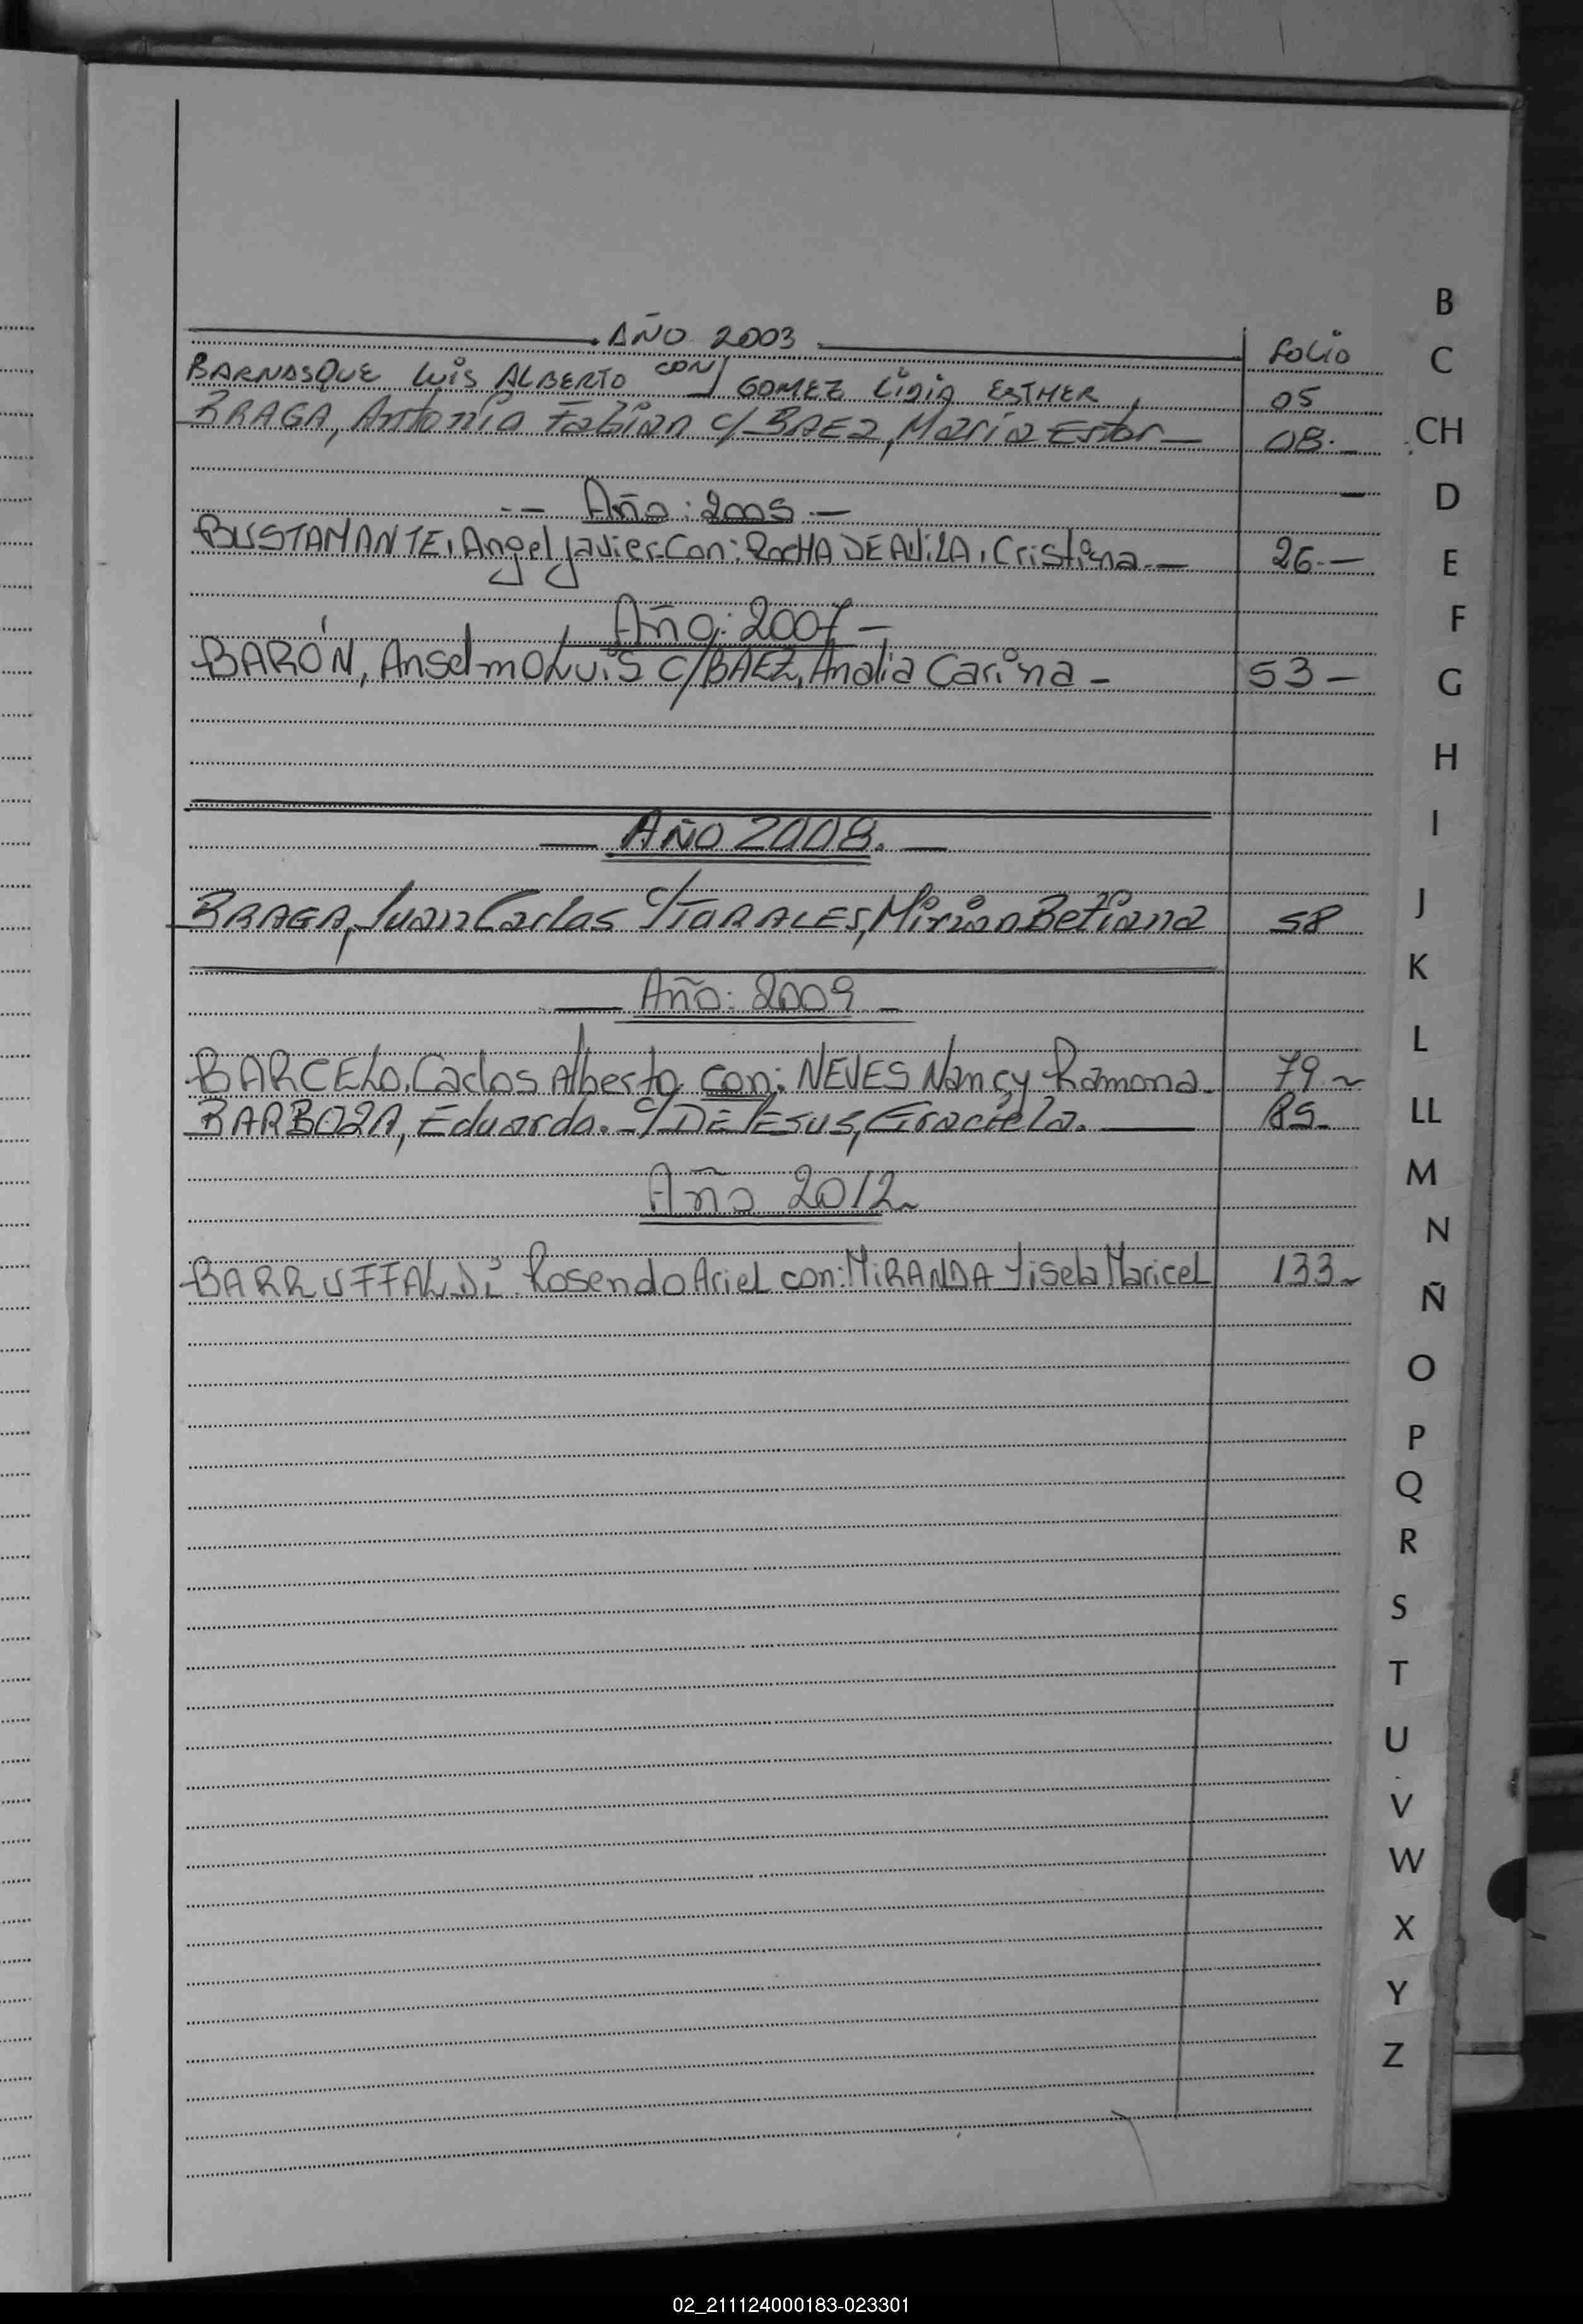 AÑO 2003
folio
BARNASQUE LUIS ALBERTO CON GOMEZ LIDIA ESTHER 05
BRAGA, Antonio Fabian c/ BAEZ, María Ester — 08.—
-- Año: 2005 —
BUSTAMANTE, Angel Javier.Con: ROCHA DE AVILA, Cristiana.— 26.—
Año: 2007 —
BARÓN, Anselmo Luis C/BAEZ, Analia Carina - 53 —
— AÑO 2008. —
BRAGA, Juan Carlos c/ MORALES, Mirian Betiana 58
— Año: 2009 —
BARCELO, Carlos Alberto. con: NEVES Nancy Ramona. 79 ~
BARBOZA, Eduardo. c/ DE JESUS, Graciela. —
Año 2012 ~
BARRUFFALDI. Rosendo Ariel con: MIRANDA Yisela Maricel 133 ~
B
C
CH
D
E
F
G
H
I
J
K
L
LL
M
N
Ñ
O
P
Q
R
S
T
U
V
W
X
Y
Z
02_211124000183-023301